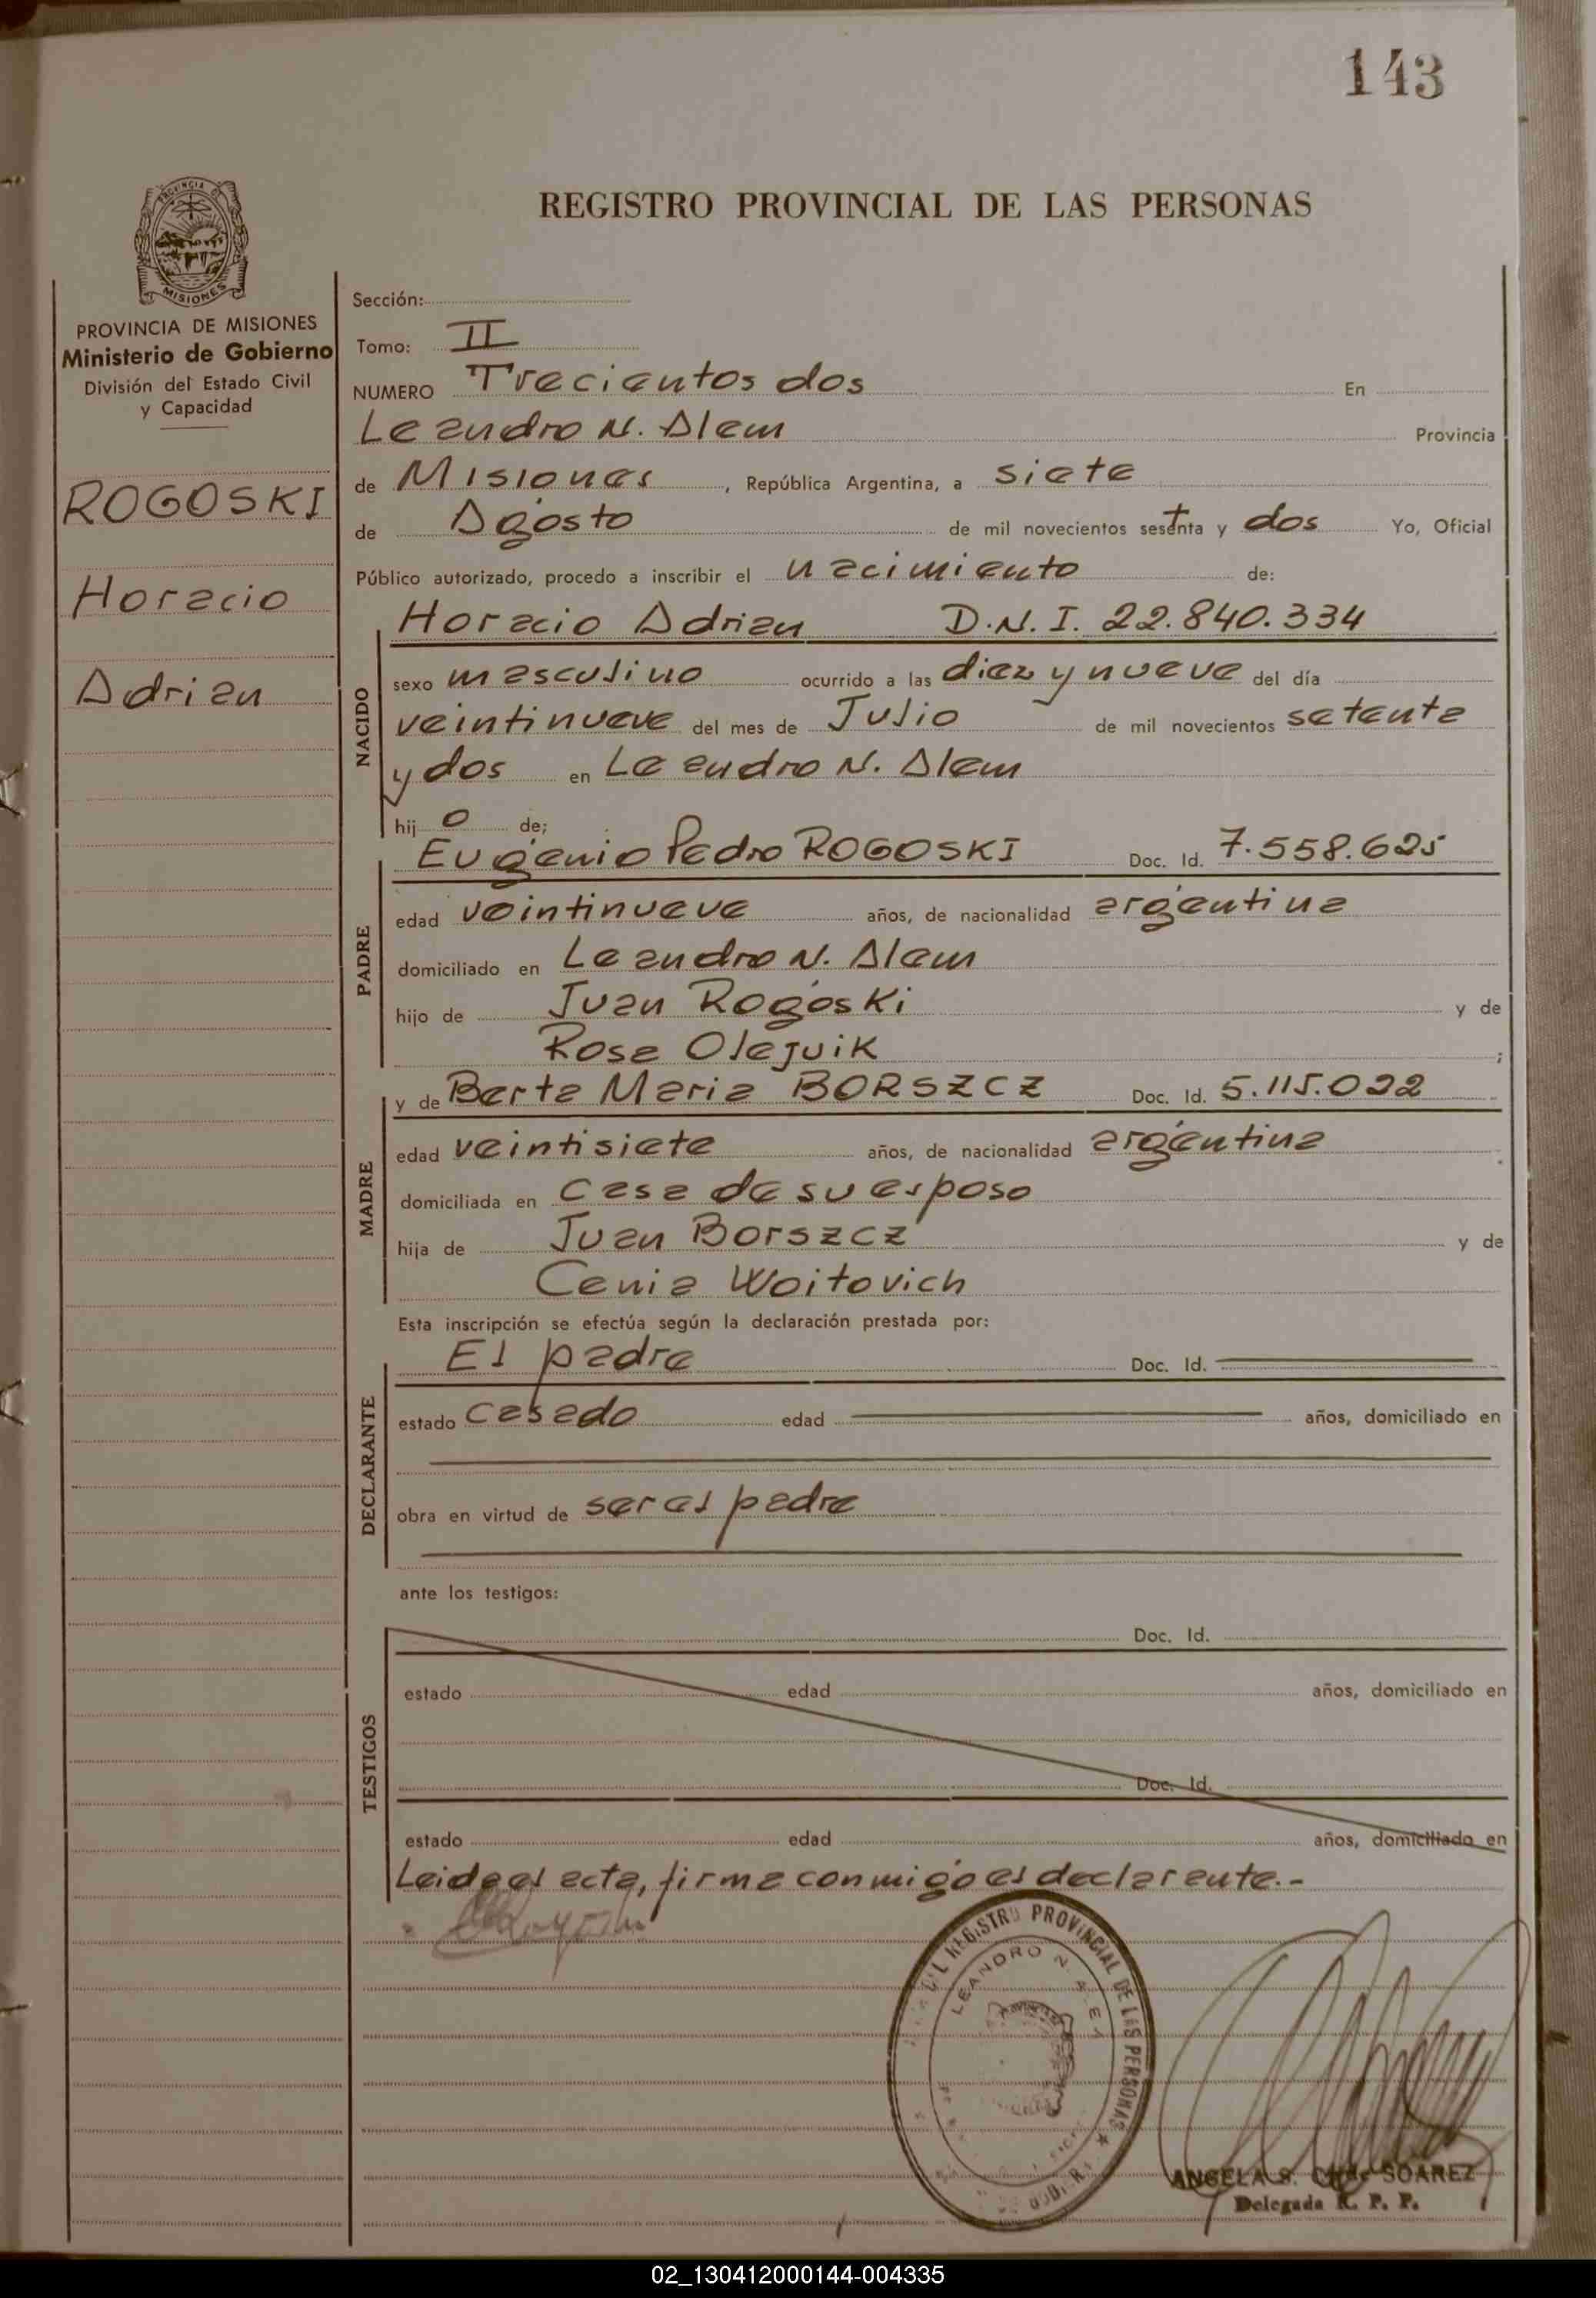 143
REGISTRO PROVINCIAL DE LAS PERSONAS
PROVINCIA DE
MISIONES
PROVINCIA DE MISIONES
Ministerio de Gobierno
División del Estado Civil
y Capacidad
ROGOSKI
Horacio
Adrian
Sección:
Tomo: II
NUMERO Trecientos dos En
Leandro N. Alem Provincia
de Misiones, República Argentina, a siete
de Agosto de mil novecientos setenta y dos Yo, Oficial
Público autorizado, procedo a inscribir el nacimiento de:
Horacio Adrian D.N.I. 22.840.334
NACIDO
sexo masculino ocurrido a las diez y nueve del día
veintinueve del mes de Julio de mil novecientos setenta
y dos en Leandro N. Alem
hijo de;
Eugenio Pedro ROGOSKI Doc. Id. 7.558.625
PADRE
edad veintinueve años, de nacionalidad argentina
domiciliado en Leandro N. Alem
hijo de Juan Rogoski y de
Rosa Olejnik ;
y de Berta Maria BORSZCZ Doc. Id. 5.115.022
MADRE
edad veintisiete años, de nacionalidad argentina
domiciliada en casa de su esposo
hija de Juan Borszcz y de
Cenia Woitovich
Esta inscripción se efectúa según la declaración prestada por:
El padre Doc. Id.
DECLARANTE
estado casado edad años, domiciliado en
obra en virtud de ser el padre
ante los testigos:
Doc. Id.
TESTIGOS
estado edad años, domiciliado en
Doc. Id.
estado edad años, domiciliado en
Leida el acta, firma conmigo el declarante.-
REGISTRO PROVINCIAL DE LAS PERSONAS
LEANDRO N. ALEM
ANGELA S. SOAREZ
Delegada R. P. P.
02_130412000144-004335